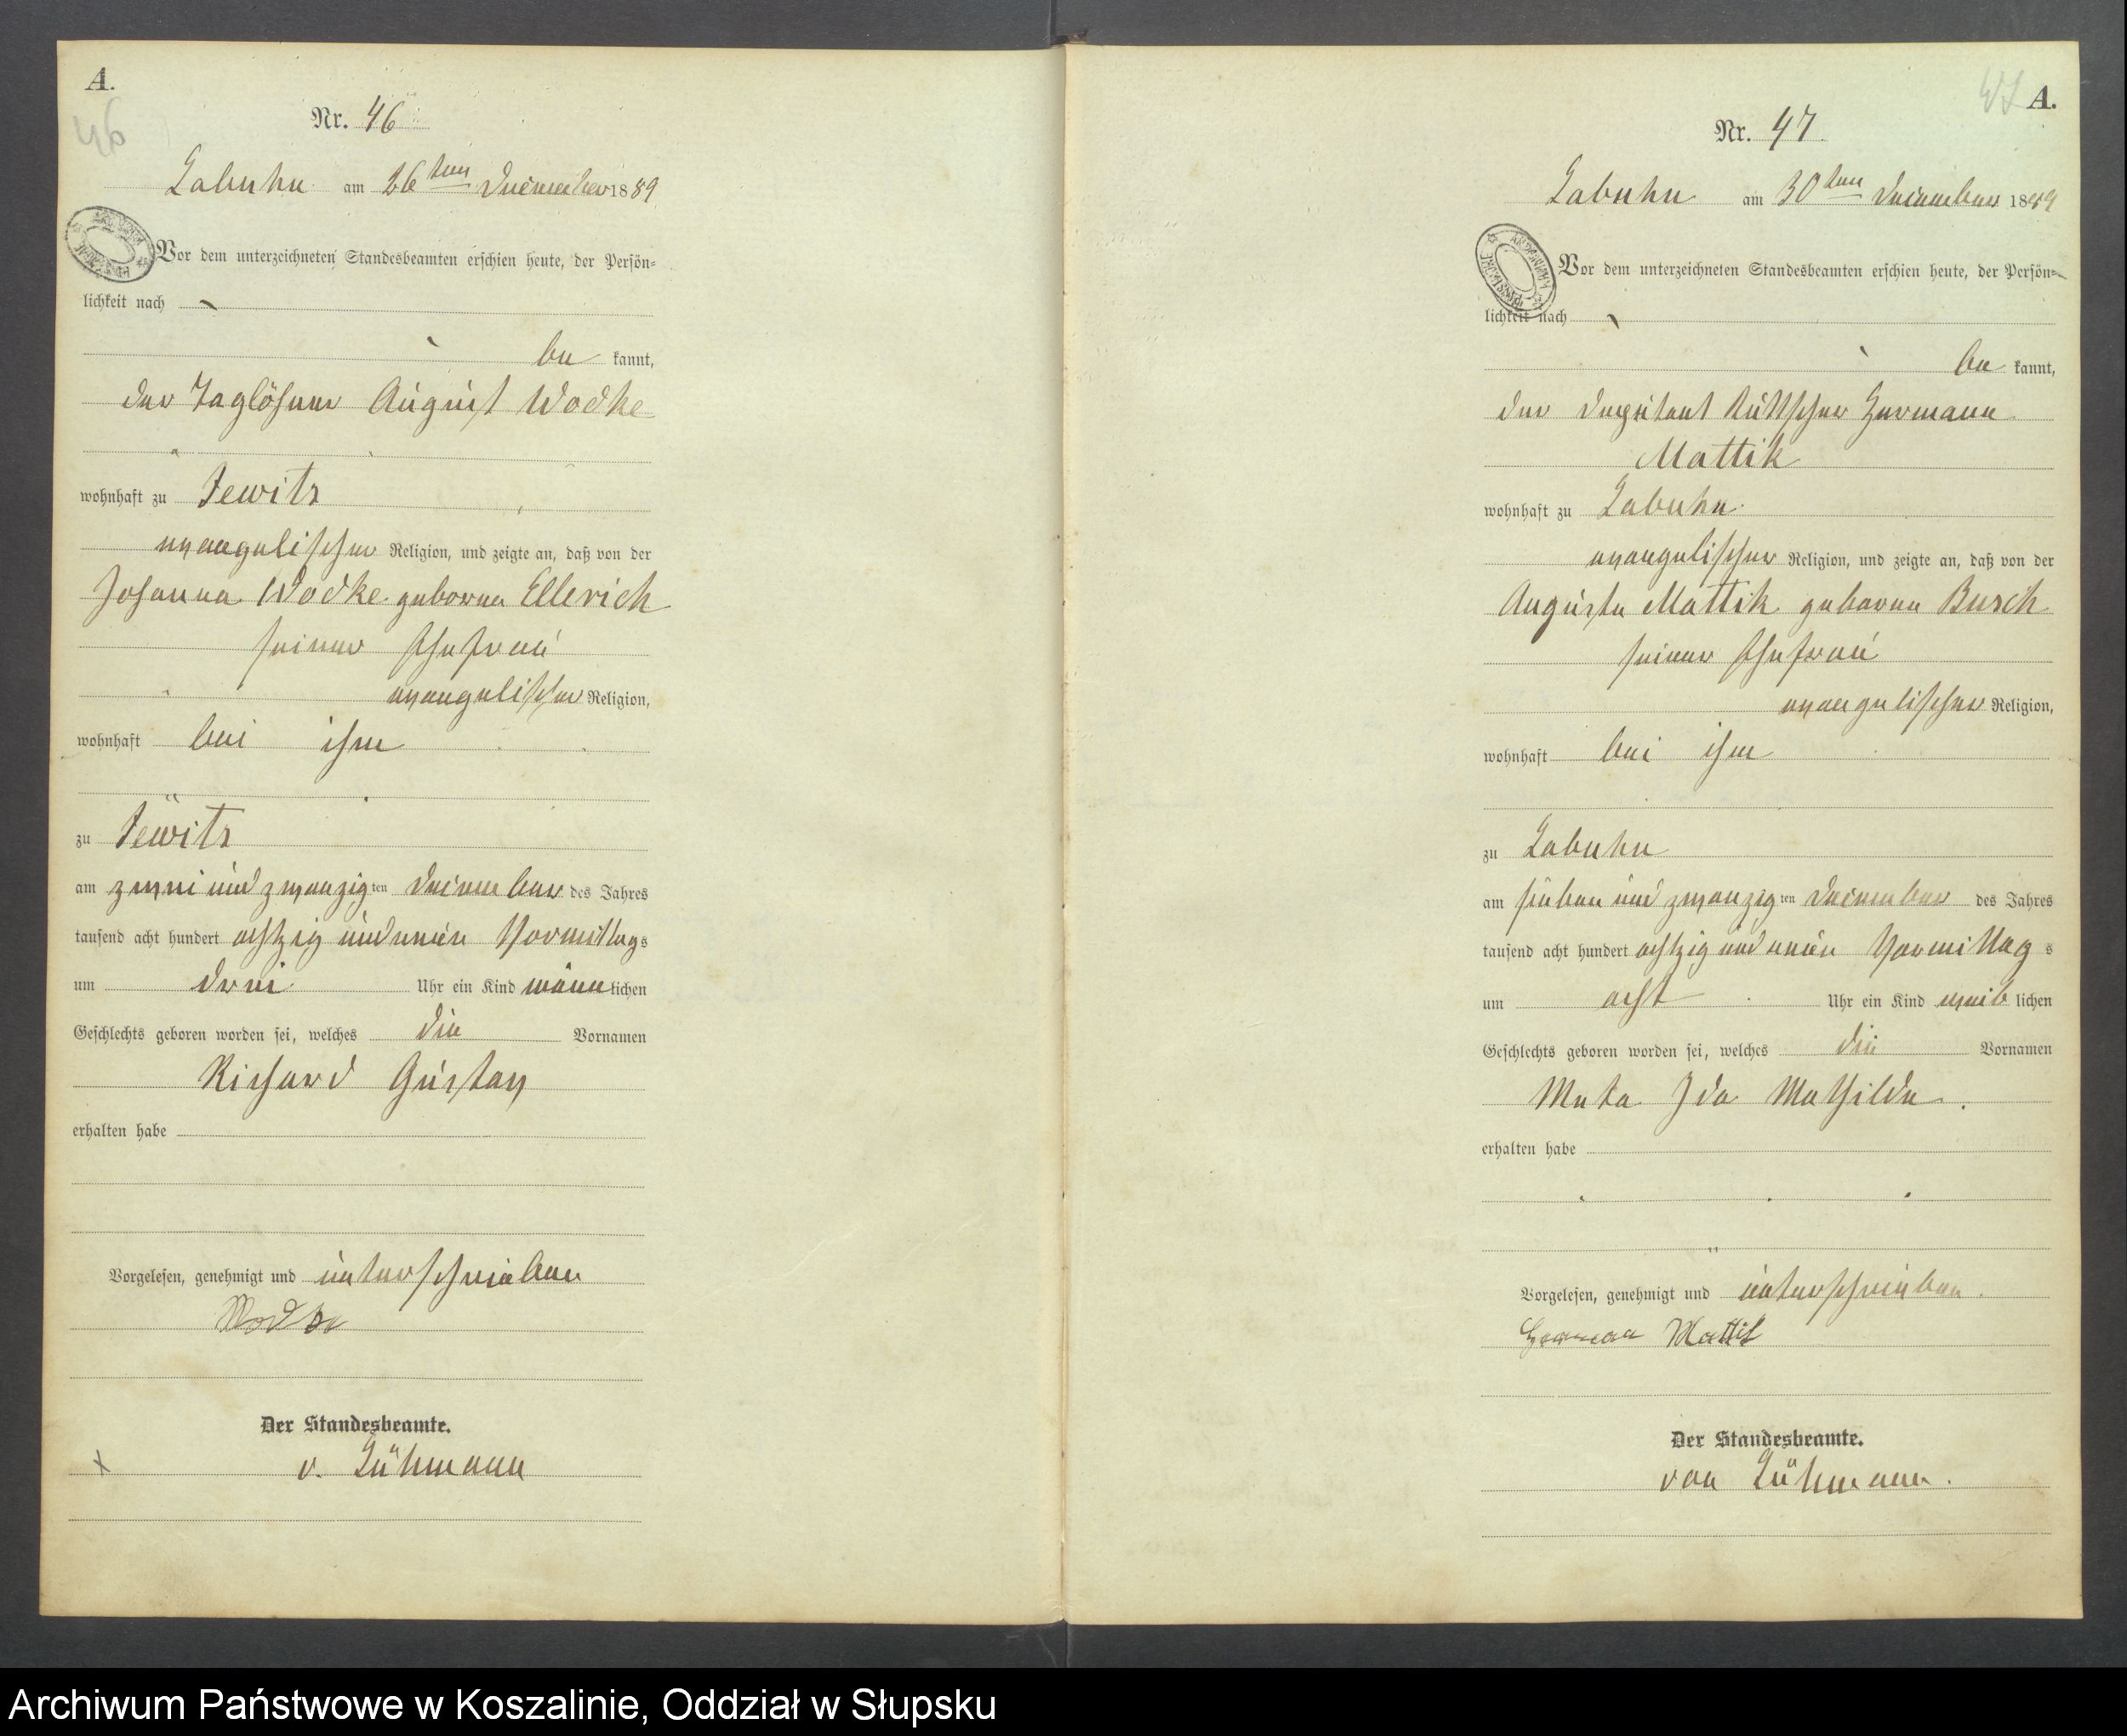 A.
46
Nr. 46
Labuhn am 26ten December 1889
Vor dem unterzeichneten Standesbeamten erschien heute, der Persön=
lichkeit nach
be kannt,
der Taglöhner August Wodke
wohnhaft zu Jewitz
evangelischer Religion, und zeigte an, daß von der
Johanna Wodke geborne Ellerich
seiner Ehefrau
evangelischer Religion,
wohnhaft bei ihm
zu Jewitz
am zwei und zwanzigten December des Jahres
tausend acht hundert achtzig und neun Vormittags
um drei Uhr ein Kind männlichen
Geschlechts geboren worden sei, welches die Vornamen
Richard Gustav
erhalten habe
Vorgelesen, genehmigt und unterschrieben
Wodke
Der Standesbeamte.
v. Lühmann
47 A.
Nr. 47
Labuhn am 30ten December 1889
Vor dem unterzeichneten Standesbeamten erschien heute, der Persön=
lichkeit nach
be kannt,
der Deputant Kuttscher Hermann
Mattik
wohnhaft zu Labuhn
evangelischer Religion, und zeigte an, daß von der
Auguste Mattik geborne Busch
seiner Ehefrau
evangelischer Religion,
wohnhaft bei ihm
zu Labuhn
am sieben und zwanzigten December des Jahres
tausend acht hundert achtzig und neun Vormittags
um acht Uhr ein Kind weiblichen
Geschlechts geboren worden sei, welches die Vornamen
Meta Ida Mathilde.
erhalten habe
Vorgelesen, genehmigt und unterschrieben.
Herman Mattik
Der Standesbeamte.
von Lühmann.
Archiwum Państwowe w Koszalinie, Oddział w Słupsku